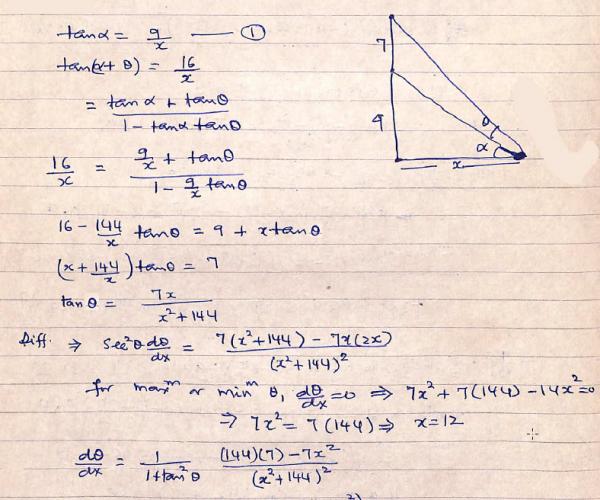 tanα = 9/x —— ①
tan(α+θ) = 16/x
= (tanα + tanθ)/(1 - tanα tanθ)
16/x = (9/x + tanθ)/(1 - 9/x tanθ)
16 - 144/x tanθ = 9 + x tanθ
(x + 144/x) tanθ = 7
tanθ = 7x/(x² + 144)
Diff. ⇒ sec²θ dθ/dx = (7(x²+144) - 7x(2x))/(x²+144)²
for maxᵐ or minᵐ θ, dθ/dx = 0 ⇒ 7x² + 7(144) - 14x² = 0
⇒ 7x² = 7(144) ⇒ x = 12
dθ/dx = 1/(1+tan²θ) ((144)(7) - 7x²)/(x²+144)²
7
9
θ
α
x